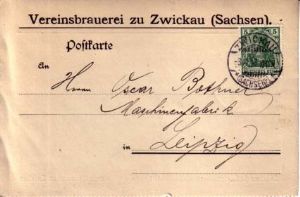 Vereinsbrauerei zu Zwickau (Sachsen).
Postkarte
An
Herrn Oscar Bothner
Maschinenfabrik
in Leipzig